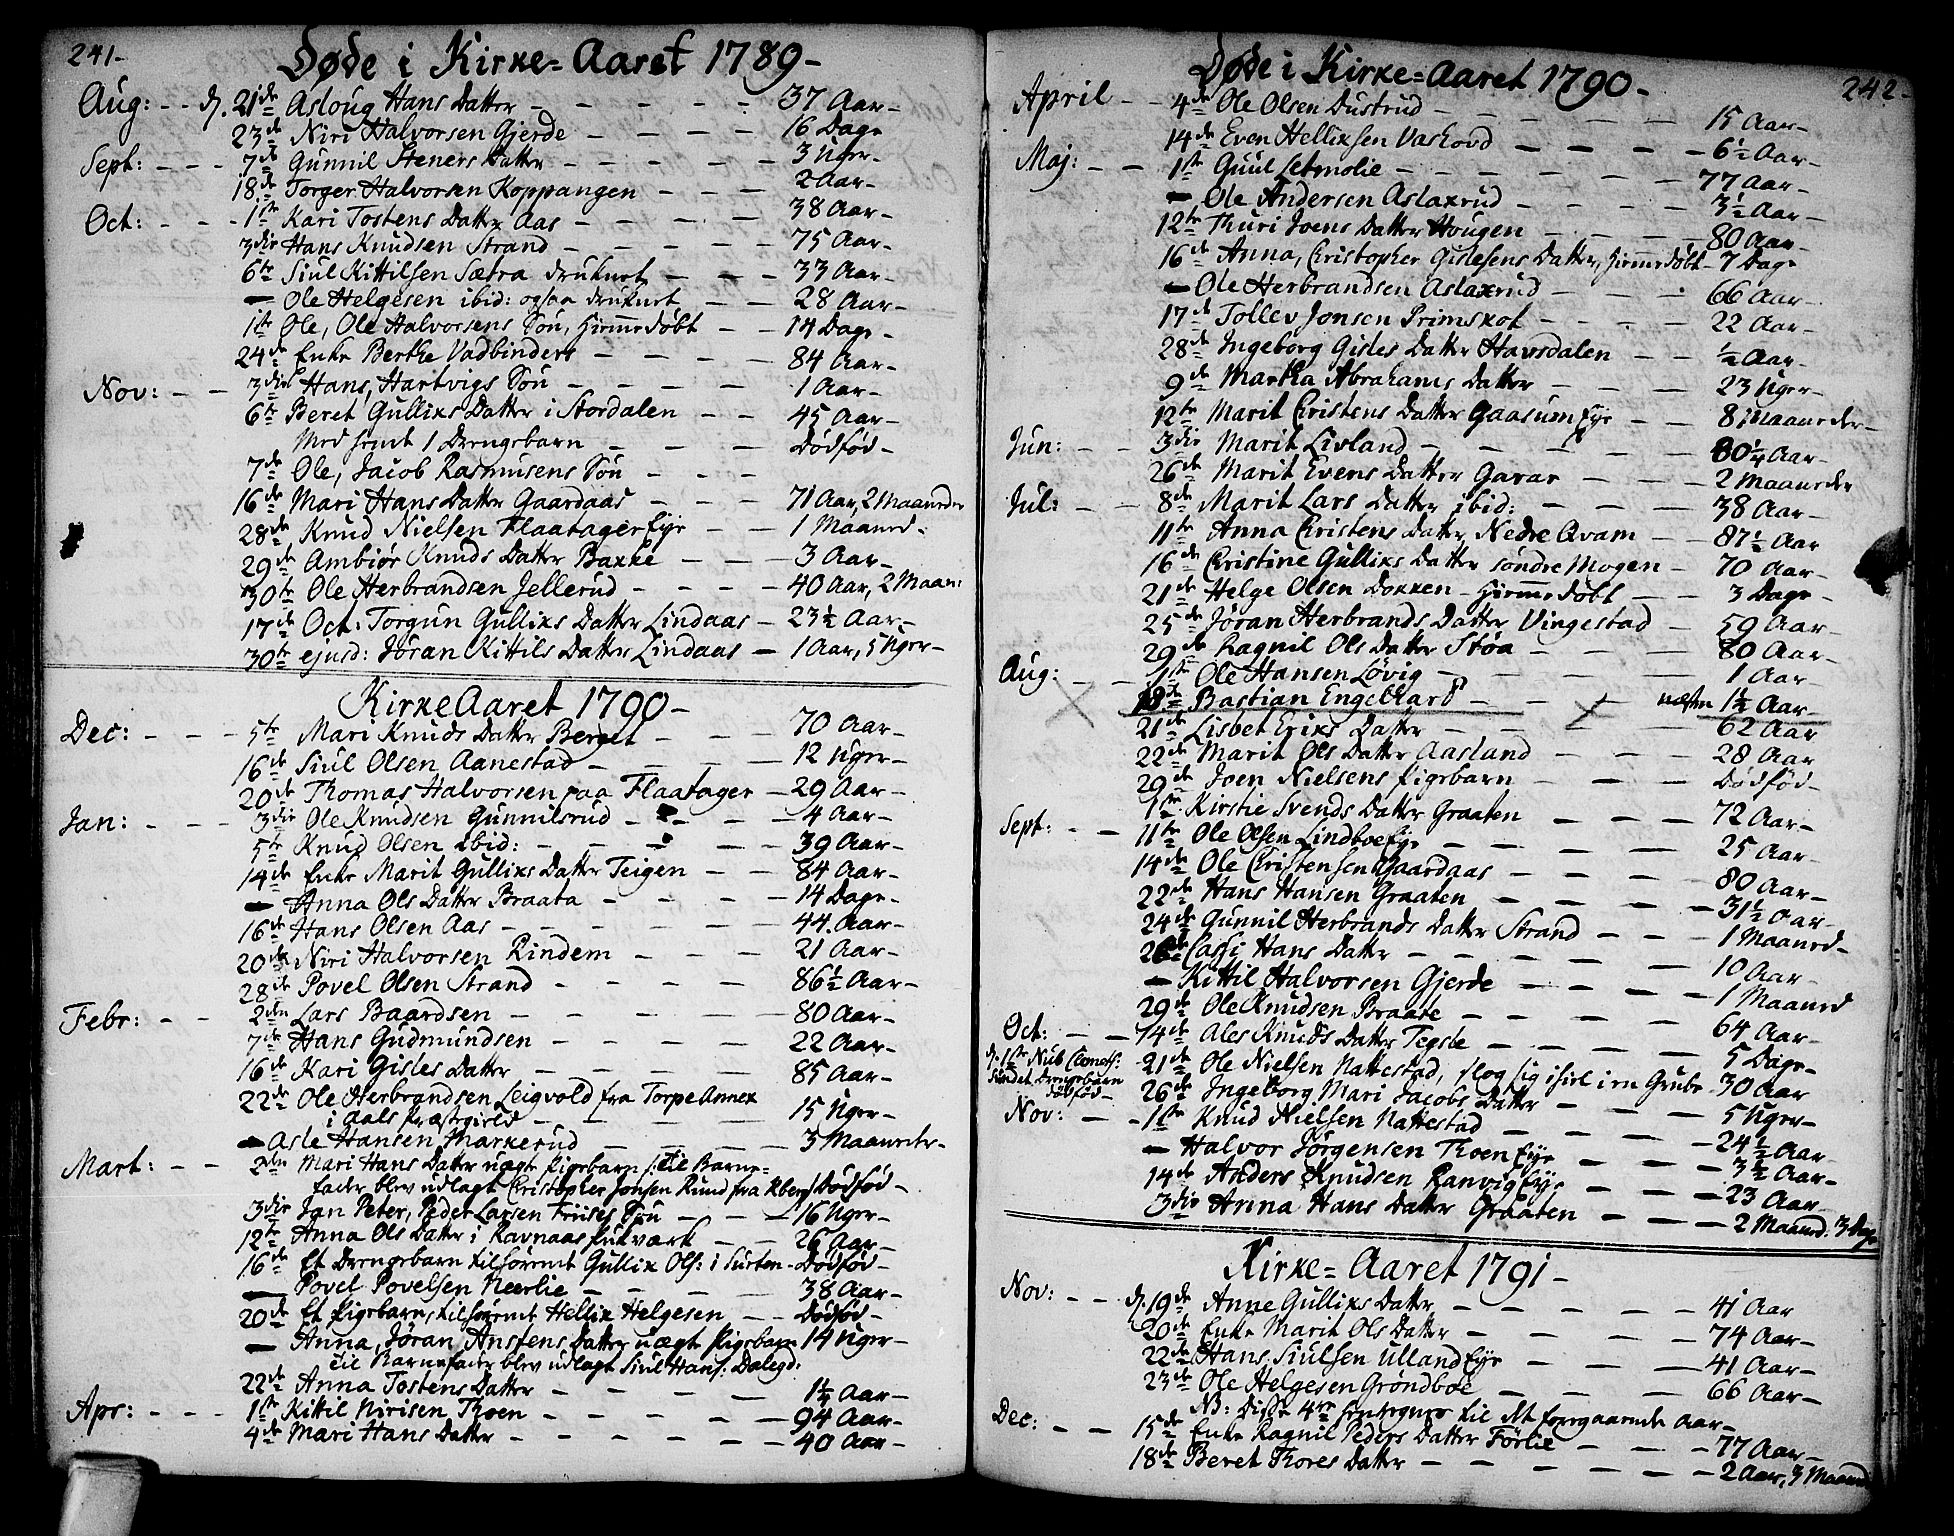 241-
Døde i Kirke=Aaret 1789-
Aug: - - d. 21de Asloug Hans Datter - - - - - 37 Aar-
23de Niri Halvorsen Gjerde - - - - 16 Dage
Sept: - - - 7de Gunnil Steners Datter - - - - 3 Uger-
18de Torger Halvorsen Koppangen - - - 2 Aar-
Oct: - - - 1ste Kari Tostens Datter Aas - - - - 38 Aar-
3die Hans Knudsen Strand - - - - 75 Aar-
6te Siul Kittilsen Sætra druknet - - - 33 Aar-
- Ole Helgesen ibid: ogsaa druknet - - 28 Aar-
1ste Ole, Ole Halvorsens Søn, hiemmedøbt - - 14 Dage-
24de Enke Berthe Vadbinders - - - - 84 Aar-
Nov: - - 3die Hans, Hartvigs Søn - - - - 1 Aar-
6te Beret Gulliks Datter i Stordalen - - 45 Aar-
Med hendt 1 Drengebarn - - - Dødfød-
7de Ole, Jacob Rasmusens Søn - - -
16de Mari Hans Datter Gaardaas - - - 71 Aar, 2 Maaneder
28de Knud Nielsen FlaatagerEye - - 1 Maaned-
29de Ambiør Knuds Datter Bakke - - - 3 Aar-
30te Ole Herbrandsen Jellerud - - - - 40 Aar, 2 Maan:
17de Oct: Torgun Gulliks Datter Lindaas - 23½ Aar-
30te ejusd: Jøran Kittils Datter Lindaas - 1 Aar, 5 Uger-
Kirke Aaret 1790-
Dec: - - - 5te Mari Knuds Datter Berget - - - 70 Aar-
16de Siul Olsen Aanestad - - - - 12 Uger-
20de Thomas Halvorsen paa Flaatager - 29 Aar-
Jan: - - - 3die Ole Knudsen Gunnilsrud - - - - 4 Aar-
5te Knud Olsen ibid: - - - - - 39 Aar-
14de Enke Marit Gulliks Datter Teigen - - 84 Aar-
- Anna Ols Datter Braata - - - - 14 Dage-
16de Hans Olsen Aas - - - - - 44 Aar-
20de Niri Halvorsen Rindem - - - 21 Aar-
28de Povel Olsen Strand - - - - 86½ Aar-
Febr: - - 2den Lars Baardsen - - - - - 80 Aar-
7de Hans Gudmundsen - - - - 22 Aar-
16de Kari Gisles Datter - - - - 85 Aar-
22de Ole Herbrandsen Leigvold fra Torpe Annex
i Aals Præstgield - - - - 15 Uger-
- Asle Hansen Markerud - - - - 3 Maaneder-
Mart: - - 2den Mari Hans Datter uægte Pigebarn /: til Barne=
fader blev udlagt Cristopher Jonsen Rund fra Aberg Dødfød-
3die Jan Peter, Peder Larsen Friises Søn - - - 16 Uger-
12te Anna Ols Datter i Ravnaas Huusværk - - 26 Aar-
16de Et Drengebarn tilhørende Gullik Ols: i Surten- Dødfød-
- Povel Povelsen Neerlie - - - - 38 Aar-
20de Et Pigebarn, tilhørende Hellik Helgesen - - Dødfød-
- Anna, Jøran Anstens Datter uægte Pigebarn 14 Uger-
til Barnefader blev udlagt Siul Hans: Dalegd:
22de Anna Tostens Datter - - - - 1¼ Aar-
Apr: - - - 1ste Kittil Nirisen Thoen - - - - - 94 Aar-
4de Mari Hans Datter - - - - - 40 Aar-
242-
Døde i Kirke=Aaret 1790-
April - - 4de Ole Olsen Dustrud - - - - - 15 Aar-
14de Even Helliksen Vaskovd - - - - 6½ Aar-
Maj: - - 1ste Guul Letmolie - - - - - - 77 Aar-
- Ole Andersen Aslaxrud - - - - 3½ Aar-
12te Thuri Joens Datter Hougen - - - - 80 Aar-
16de Anna, Cristopher Gislesens Datter, hiemmedøbt- 7 Dage
- Ole Herbrandsen Aslaxrud - - - 66 Aar-
17de Tollev Jonsen Primskot - - - - 22 Aar-
28de Ingeborg Gisles Datter Havsdalen - - ½ Aar-
9de Martha Abrahams Datter - - - - 23 Uger-
12te Marit Cristens Datter GaasumEye - - 8 Maaneder-
Jun: - - 3die Marit Livland - - - - - - 80¼ Aar-
26de Marit Evens Datter Garar - - - 2 Maaneder
Jul: - - 8de Marit Lars Datter ibid: - - - - 38 Aar-
11te Anna Cristens Datter Nedre Qvam - - 87½ Aar
16de Cristine Gulliks Datter søndre Mogen - 70 Aar-
21de Helge Olsen Dokken- hiemmedøbt - - 3 Dage-
25de Jøran Herbrands Datter Vingestad - 59 Aar-
29de Ragnil Ols Datter Støa - - - - 80 Aar-
Aug: - - - 1ste Ole Hansen Løvig - - - - - 1 Aar
18de Bastian Engelhard - - - næsten 1½ Aar-
21de Lisbet Eriks Datter - - - - - 62 Aar
22de Marit Ols Datter Aasland - - - 28 Aar
29de Joen Nielsens Pigebarn - - - - Dødfød-
1ste Kirstie Svends Datter Graaten - - - 72 Aar-
Sept: - - 11te Ole Olsen LindboeEye - - - - - 25 Aar-
14de Ole Cristensen Gaardaas - - - - 80 Aar-
22de Hans Hansen Graaten - - - - 31½ Aar-
24de Gunnil Herbrands Datter Strand - - - 1 Maaned-
26de Cassi Hans Datter - - - - - 10 Aar-
- Kittil Halvorsen Gjerde - - - - 1 Maaned
29de Ole Knudsen Braate - - - - 64 Aar-
Oct: - - 14de Ales Knuds Datter Tegsle - - - - 5 Dage-
d: 1ste Nub Clemets: 21de Ole Nielsen Nattestad, slog sig ihiel i en Grube - 30 Aar
Sundet Drengebarn
dødfød- 26de Ingeborg Mari Jacobs Datter - - - - 5 Uger-
Nov: - - 1ste Knud Nielsen Nattestad - - - - 24½ Aar-
- Halvor Jørgensen ThoenEye - - - - 3½ Aar-
14de Anders Knudsen RanvigEye - - - - 23 Aar-
3die Anna Hans Datter Graaten - - - 2 Maaned: 3 Dage
Kirke=Aaret 1791-
Nov: - - d. 19de Anne Gulliks Datter - - - - - 41 Aar
20de Enke Marit Ols Datter - - - - - 74 Aar-
22de Hans Siulsen UllandEye - - - - 41 Aar-
23de Ole Helgesen Grøndboe - - - - 66 Aar-
NB: Disse 4re henhører til det foregaaende Aar-
Dec: - - 15de Enke Ragnil Peders Datter Førlie - - - 77 Aar-
18de Beret Thores Datter - - - - - 2 Aar, 3 Maaned